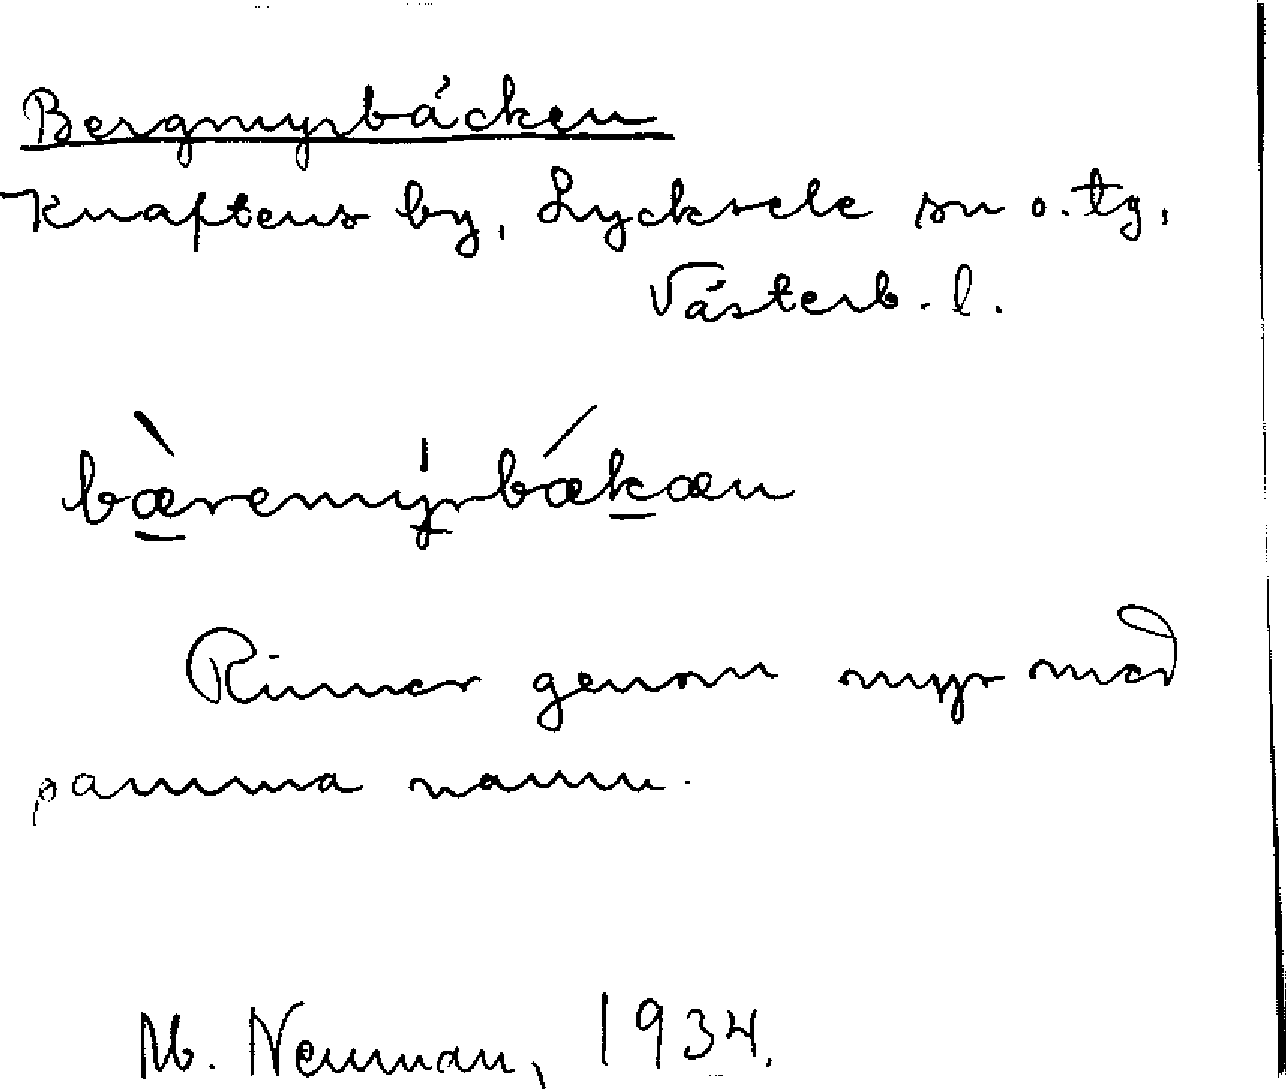 Bergmyrbäcken
Knaftens by, Lycksele sn o. tg,
Västerb. l.
bæ̀remyrbǽkæn
Rinner genom myr med
samma namn.
M. Neuman, 1934.